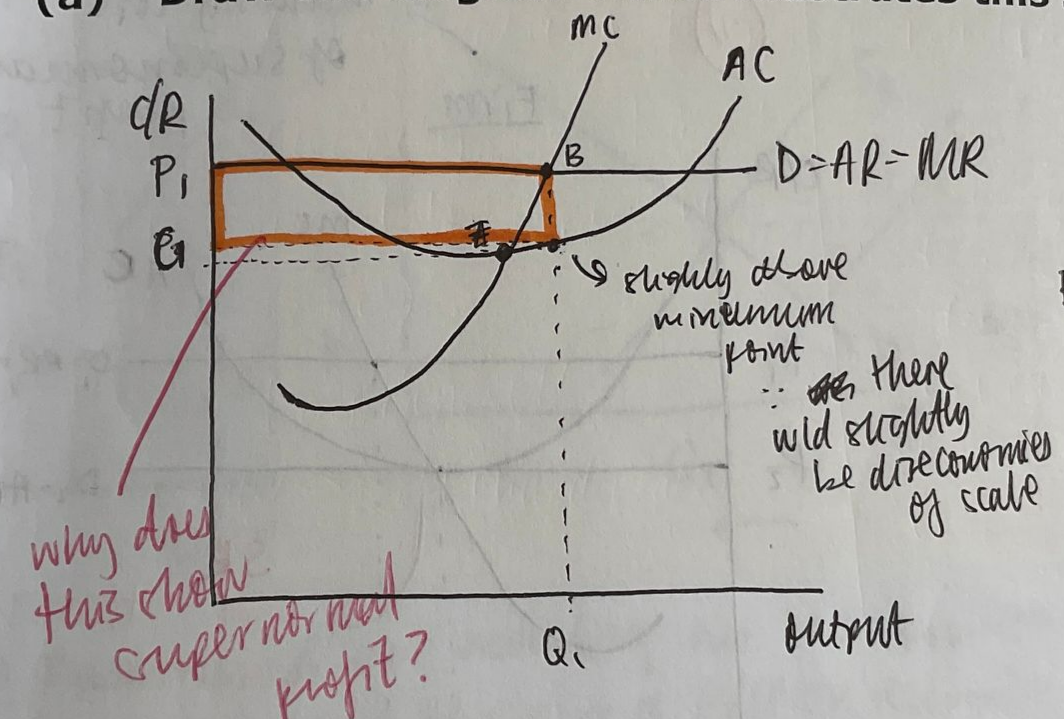 (a)
MC
AC
C/R
P₁
B
D=AR=MR
C₁
slighly above
minimum
point
∴ there
wld slightly
be diseconomies
of scale
why does
this show
supernormal
profit?
Q₁
output
Firm